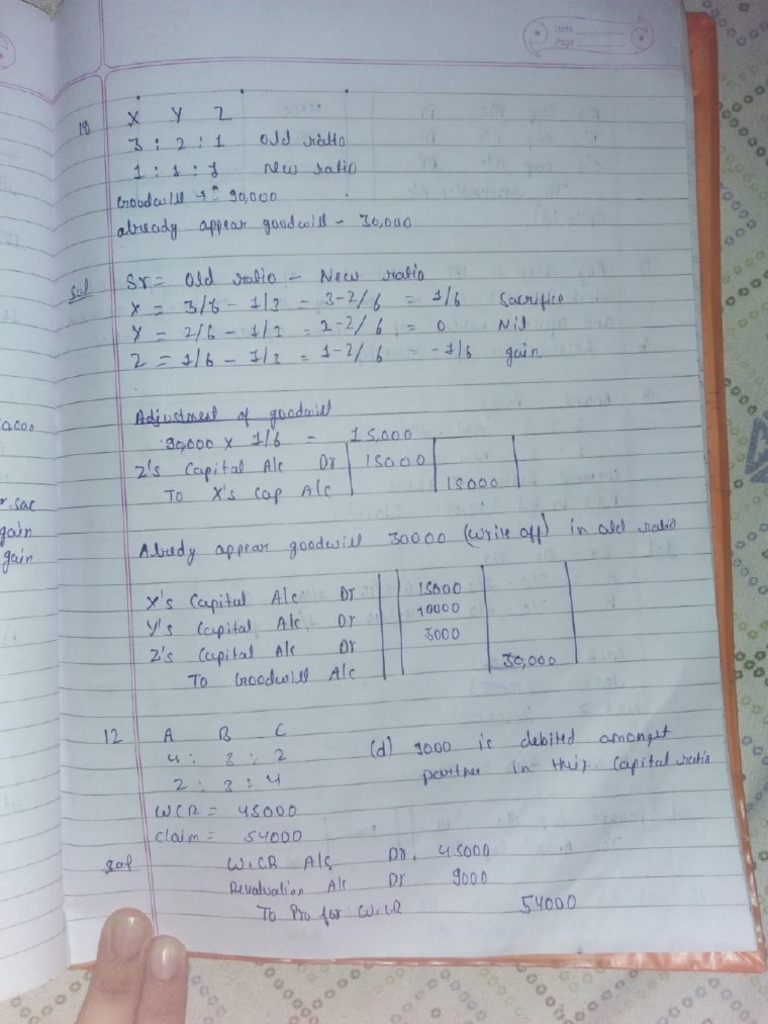 Date
Page
18 X Y Z
3 : 2 : 1 old ratio
1 : 1 : 1 New ratio
Goodwill → 90,000
already appear goodwill - 30,000
Sol Sr = Old ratio - New ratio
X = 3/6 - 1/3 = 3-2/6 = 1/6 Sacrifice
Y = 2/6 - 1/3 = 2-2/6 = 0 Nil
Z = 1/6 - 1/3 = 1-2/6 = -1/6 gain.
Adjustment of goodwill
90,000 x 1/6 = 15,000
Z's Capital A/c Dr 15000
To X's Cap A/c 15000
Alredy appear goodwill 30000 (write off) in old ratio
X's Capital A/c Dr 15000
Y's Capital A/c Dr 10000
Z's Capital A/c Dr 5000
To Goodwill A/c 30,000
12 A B C (d) 9000 is debited amongst
4 : 3 : 2 partner in their capital ratio
2 : 3 : 4
WCR = 45000
Claim = 54000
Sol W.CR A/c Dr. 45000
Revaluation A/c Dr 9000
To Pro for W.CR 54000
0,000
sac
gain
gain